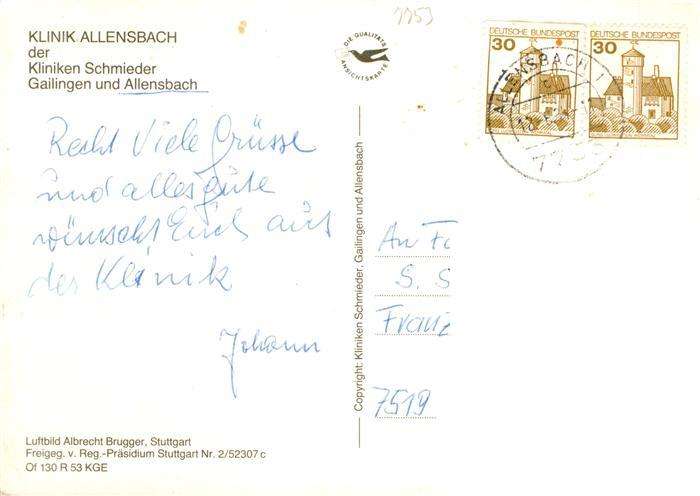 KLINIK ALLENSBACH
der
Kliniken Schmieder
Gailingen und Allensbach
Recht Viele Grüsse
und alles gute
wünscht Euch aus
der Klinik
Johann
Luftbild Albrecht Brugger, Stuttgart
Freigeg. v. Reg.-Präsidium Stuttgart Nr. 2/52307 c
Of 130 R 53 KGE
DIE QUALITÄTS
ANSICHTSKARTE
Copyright: Kliniken Schmieder, Gailingen und Allensbach
1953
DEUTSCHE BUNDESPOST
30
DEUTSCHE BUNDESPOST
30
ALLENSBACH
An
S. S
Franz
7519